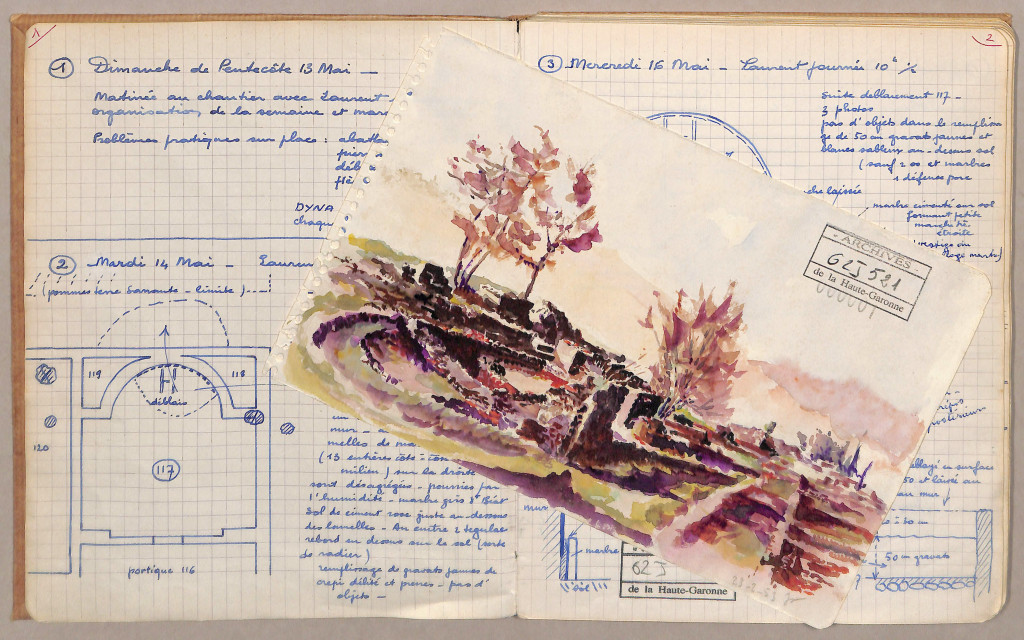 1
① Dimanche de Pentecôte 13 Mai —
Matinée au chantier avec Laurent-
organisation, de la semaine et mar
Problèmes pratiques sur place : abatta
pier
débl
DYNA
chaqu
② Mardi 14 Mai - Laurent
(pommes terre Samouta - Cimite)
119
118
déblais
120
117
portique 116
mur - a
melles de ma
(13 entières côte-
milieu) sur la droite
sont désagrégées - pourries par
l'humidité - marbre gris St Béat
Sol de ciment rose juste au-dessous
des lamelles - Au centre 2 tegulae
rebord en dessus sur le sol (sorte
de radier)
remplissage de gravats jaunes de
crepi délité et pierres - pas d'
objets -
2
③ Mercredi 16 Mai - Laurent journée 10h ½
suite deblaiement 117 -
3 photos
pas d'objets dans le remplissa
ge de 50 cm gravats jaunes et
blancs sableux au-dessus sol
(sauf 2 os et marbres
1 défense porc
che laissée
marbre cimenté au sol
formant petite
marche très
étroite
ARCHIVES
62J521
de la Haute-Garonne
postérieur
en surface
50 et laissé au
au mur
mur
marbre
sol
50 cm gravats
62J
de la Haute-Garonne